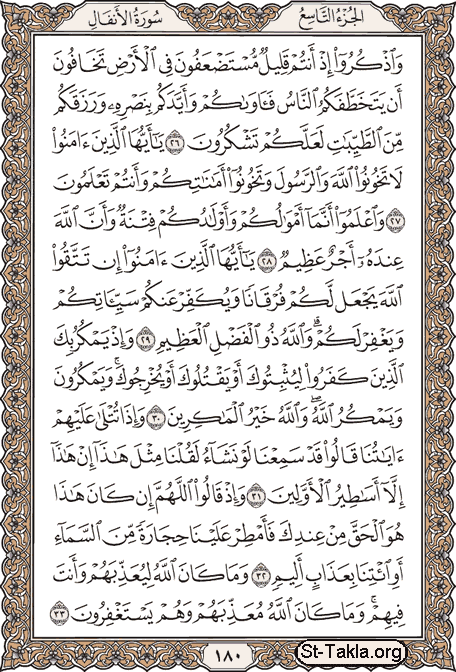 الجزء التاسع
سورة الأنفال
وَاذْكُرُوٓا۟ إِذْ أَنتُمْ قَلِيلٌ مُّسْتَضْعَفُونَ فِى الْأَرْضِ تَخَافُونَ
أَن يَتَخَطَّفَكُمُ النَّاسُ فَـَٔاوَىٰكُمْ وَأَيَّدَكُم بِنَصْرِهِۦ وَرَزَقَكُم
مِّنَ الطَّيِّبَـٰتِ لَعَلَّكُمْ تَشْكُرُونَ ٢٦ يَـٰٓأَيُّهَا الَّذِينَ ءَامَنُوا۟
لَا تَخُونُوا۟ اللَّهَ وَالرَّسُولَ وَتَخُونُوٓا۟ أَمَـٰنَـٰتِكُمْ وَأَنتُمْ تَعْلَمُونَ
٢٧ وَاعْلَمُوٓا۟ أَنَّمَآ أَمْوَٰلُكُمْ وَأَوْلَـٰدُكُمْ فِتْنَةٌ وَأَنَّ اللَّهَ
عِندَهُۥٓ أَجْرٌ عَظِيمٌ ٢٨ يَـٰٓأَيُّهَا الَّذِينَ ءَامَنُوٓا۟ إِن تَتَّقُوا۟
اللَّهَ يَجْعَل لَّكُمْ فُرْقَانًا وَيُكَفِّرْ عَنكُمْ سَيِّـَٔاتِكُمْ
وَيَغْفِرْ لَكُمْ ۗ وَاللَّهُ ذُو الْفَضْلِ الْعَظِيمِ ٢٩ وَإِذْ يَمْكُرُ بِكَ
الَّذِينَ كَفَرُوا۟ لِيُثْبِتُوكَ أَوْ يَقْتُلُوكَ أَوْ يُخْرِجُوكَ ۚ وَيَمْكُرُونَ
وَيَمْكُرُ اللَّهُ ۖ وَاللَّهُ خَيْرُ الْمَـٰكِرِينَ ٣٠ وَإِذَا تُتْلَىٰ عَلَيْهِمْ
ءَايَـٰتُنَا قَالُوا۟ قَدْ سَمِعْنَا لَوْ نَشَآءُ لَقُلْنَا مِثْلَ هَـٰذَآ ۙ إِنْ هَـٰذَآ
إِلَّآ أَسَـٰطِيرُ الْأَوَّلِينَ ٣١ وَإِذْ قَالُوا۟ اللَّهُمَّ إِن كَانَ هَـٰذَا
هُوَ الْحَقَّ مِنْ عِندِكَ فَأَمْطِرْ عَلَيْنَا حِجَارَةً مِّنَ السَّمَآءِ
أَوِ ائْتِنَا بِعَذَابٍ أَلِيمٍ ٣٢ وَمَا كَانَ اللَّهُ لِيُعَذِّبَهُمْ وَأَنتَ
فِيهِمْ ۚ وَمَا كَانَ اللَّهُ مُعَذِّبَهُمْ وَهُمْ يَسْتَغْفِرُونَ ٣٣
١٨٠
St-Takla.org